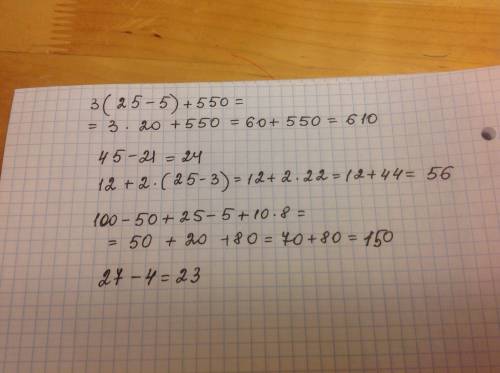 3(25-5)+550=
= 3 · 20 +550 = 60+ 550 = 610
45-21 = 24
12 + 2 · (25-3) = 12+2·22 = 12+44= 56
100-50+25-5+10·8=
= 50 + 20 +80 = 70+80 = 150
27-4=23